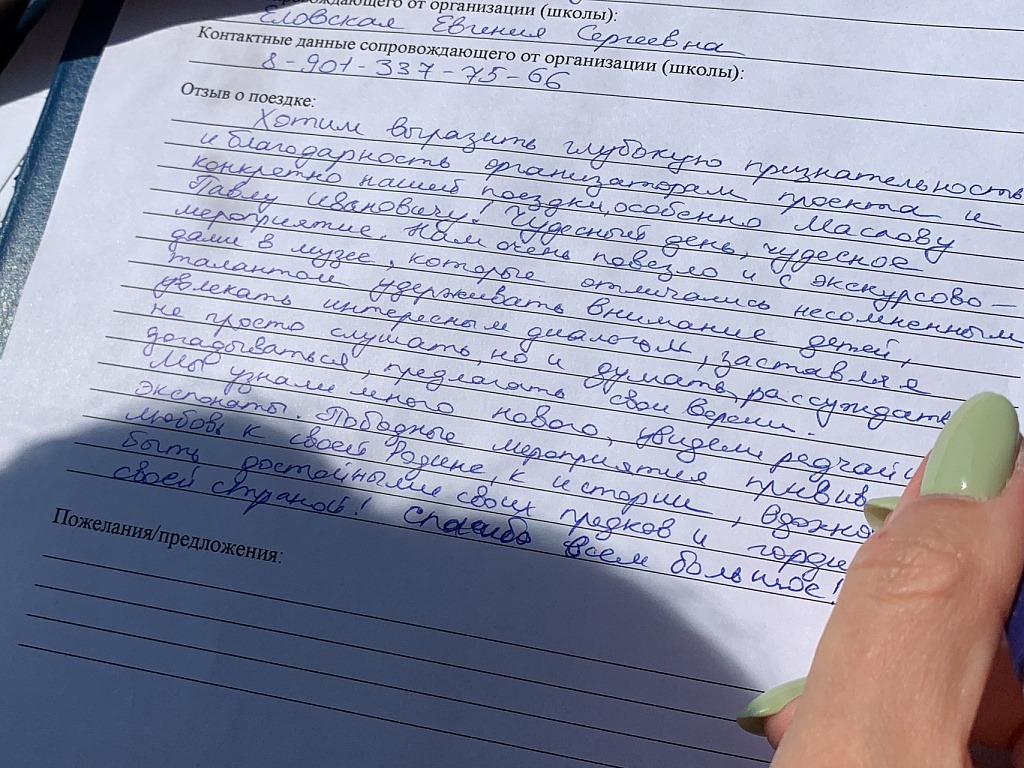 провождающего от организации (школы):
Еловская Евгения Сергеевна
Контактные данные сопровождающего от организации (школы):
8-901-337-75-66
Отзыв о поездке:
Хотим выразить глубокую признательность
и благодарность организаторам проекта и
конкретно нашей поездки, особенно Маслову
Павлу Ивановичу! Чудесный день, чудесное
мероприятие. Нам очень повезло и с экскурсово-
дами в музее, которые отличались несомненным
талантом удерживать внимание детей,
увлекать интересным диалогом, заставляя
не просто слушать, но и думать, рассуждать
догадываться, предлагать свои версии.
Мы узнали много нового, увидели редчайш
экспонаты. Подобные мероприятия привив
любовь к своей Родине, к истории, вдохно
быть достойными своих предков и горди
своей страной! Спасибо всем большое!
Пожелания/предложения: